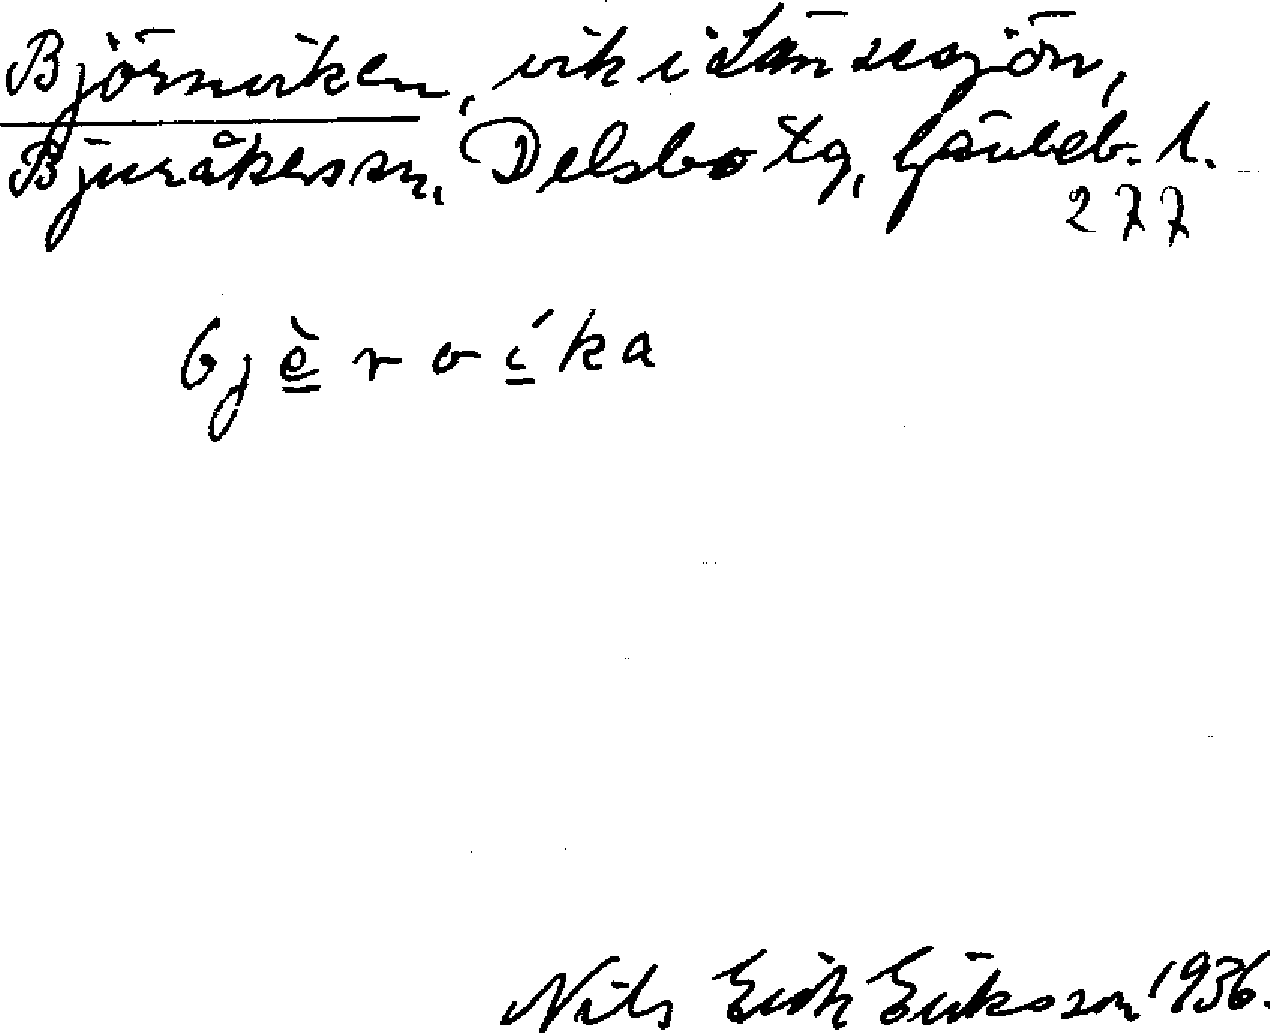 Björnviken, vik i Långsjön,
Bjuråkers sn. Delsbo tg, Gävleb. l.
277
bjèrvíka
Nils Erik Eriksson 1936.